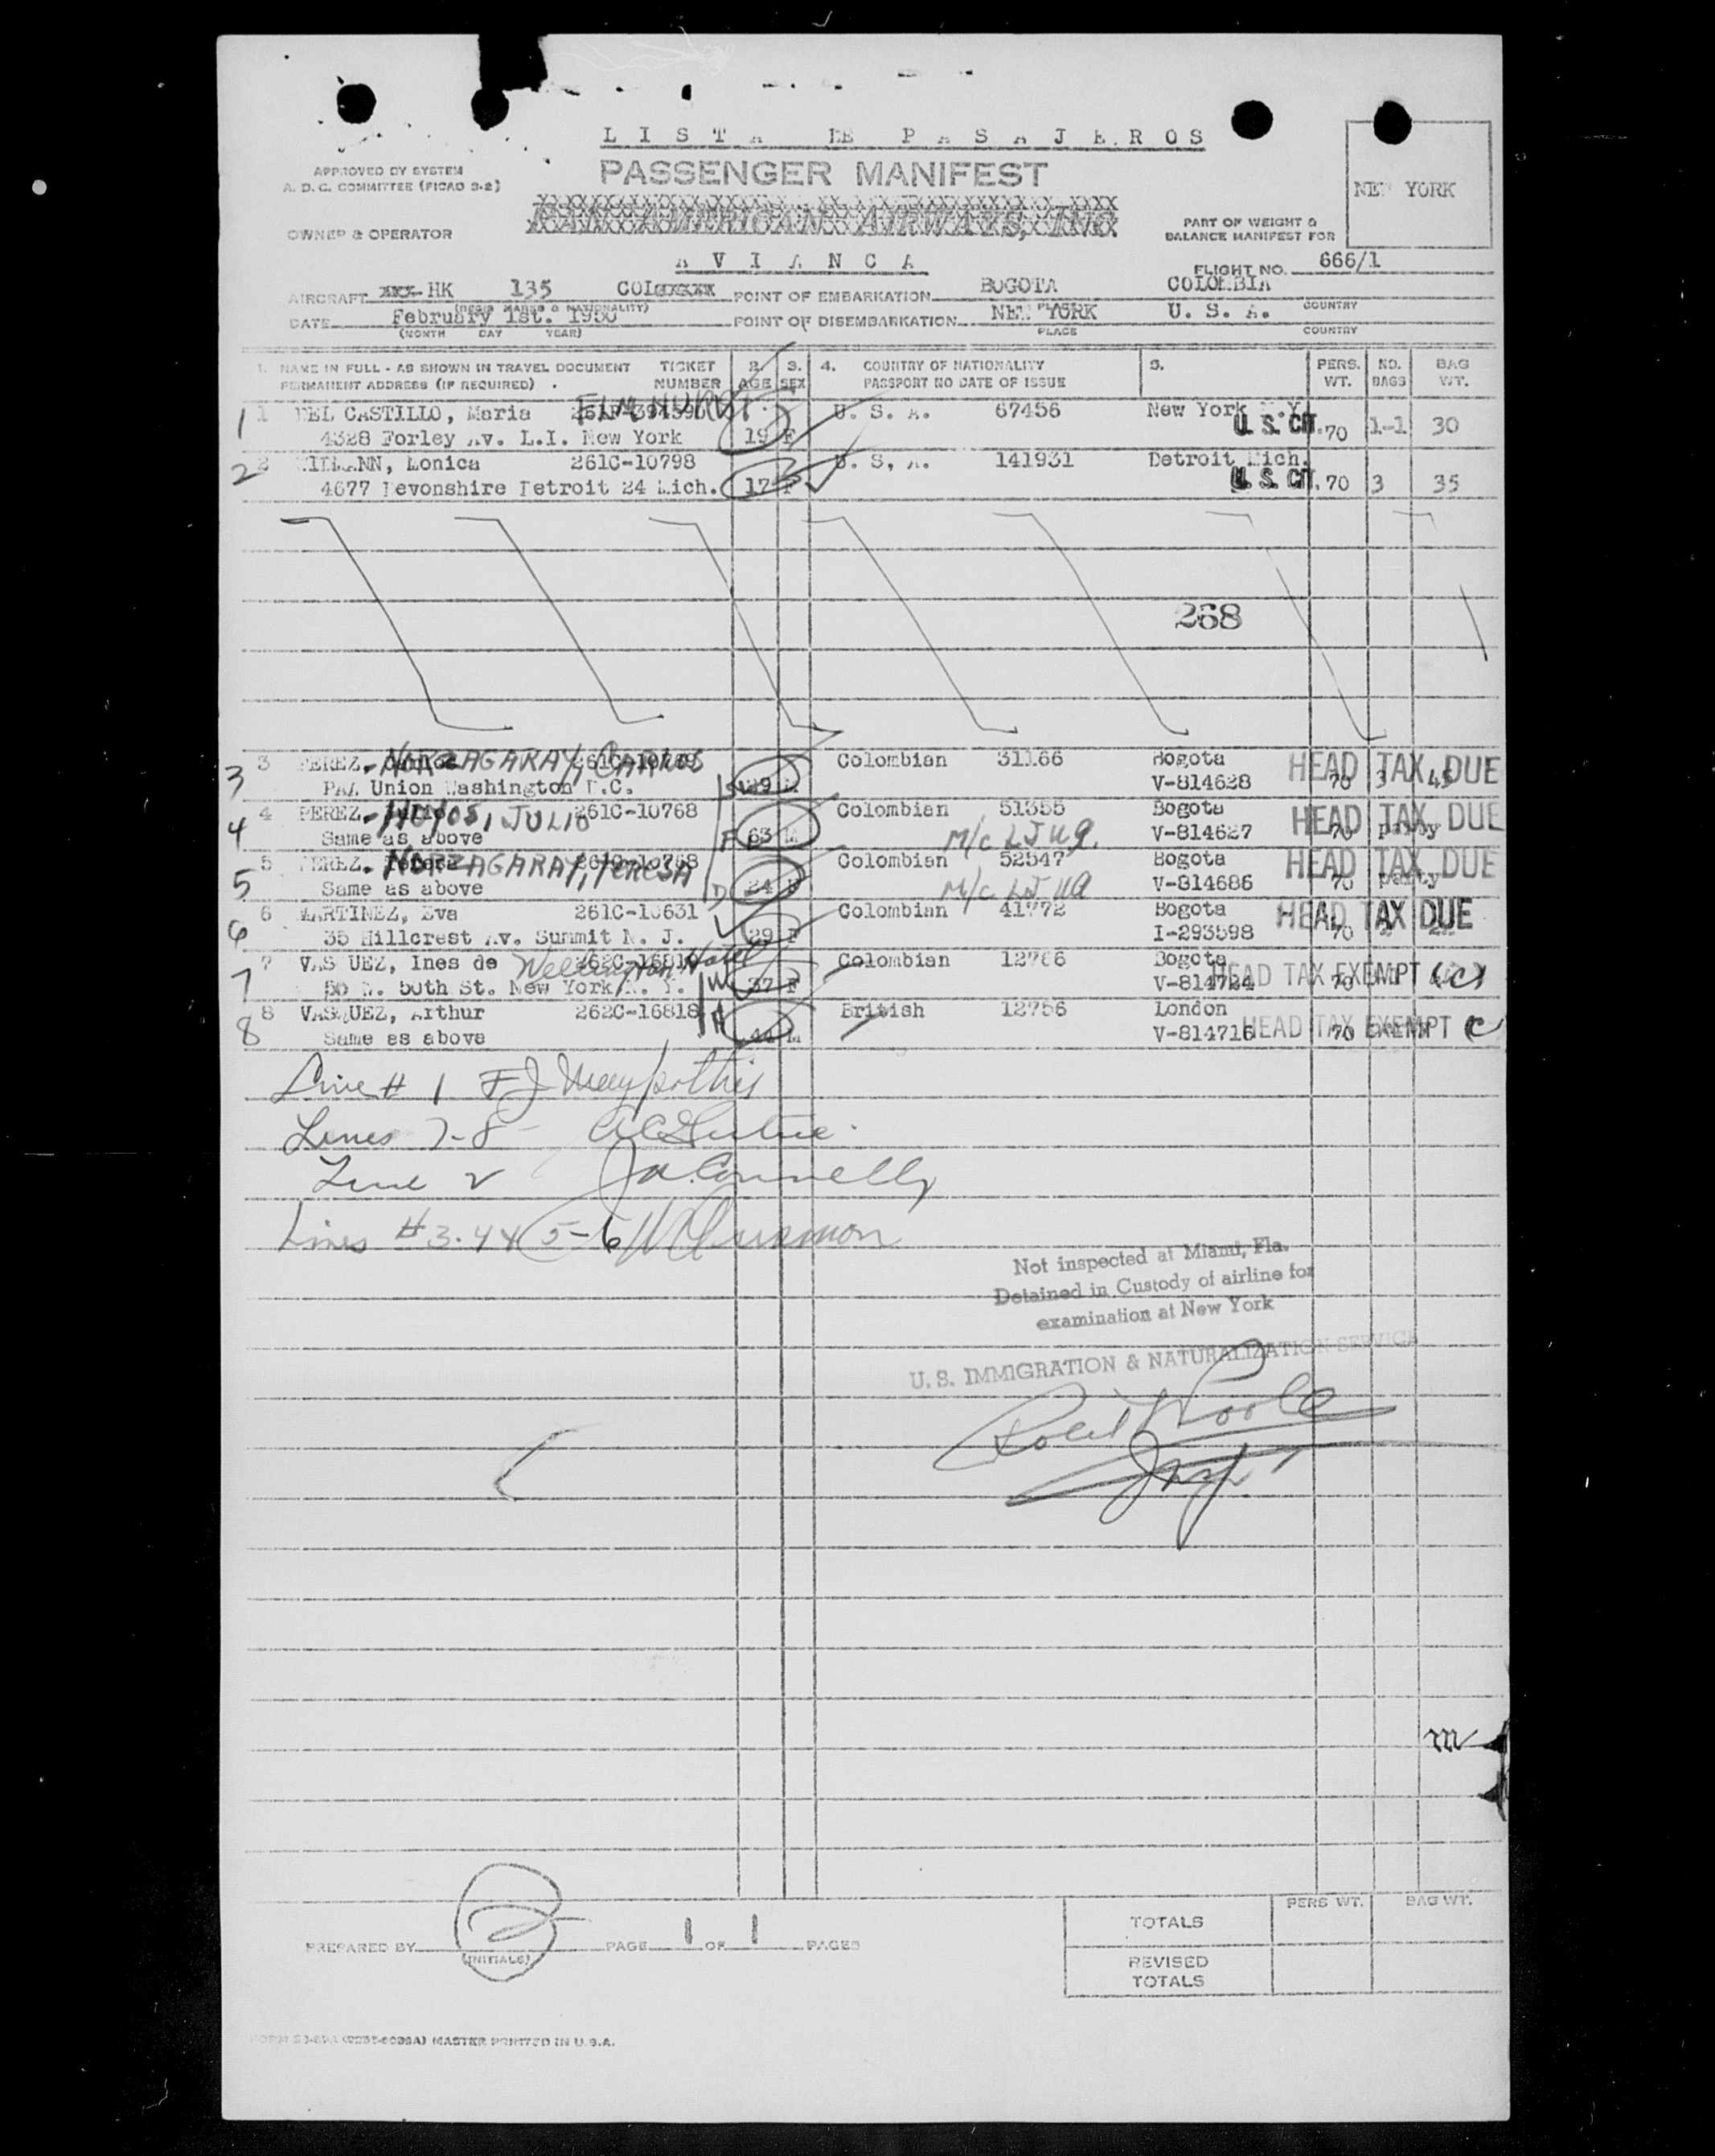 LISTA DE PASAJEROS
APPROVED BY SYSTEM
A. D. C. COMMITTEE (PICAO S-2)
PASSENGER MANIFEST
NEW YORK
PAN AMERICAN AIRWAYS, INC.
OWNER & OPERATOR
PART OF WEIGHT &
BALANCE MANIFEST FOR
AVIANCA
FLIGHT NO. 666/1
AIRCRAFT HK 135 COL
POINT OF EMBARKATION BOGOTA COLOMBIA
(REGIS MARKS & NATIONALITY) PLACE COUNTRY
DATE February 1st. 1950
POINT OF DISEMBARKATION NEW YORK U. S. A.
(MONTH DAY YEAR) PLACE COUNTRY
1. NAME IN FULL - AS SHOWN IN TRAVEL DOCUMENT TICKET 2. 3. 4. COUNTRY OF NATIONALITY 5. PERS. NO. BAG
PERMANENT ADDRESS (IF REQUIRED) NUMBER AGE SEX PASSPORT NO DATE OF ISSUE WT. BAGS WT.
1 1 DEL CASTILLO, Maria ELMHURST U. S. A. 67456 New York N.Y.
4328 Forley Av. L.I. New York 19 F U. S. CIT. 70 1-1 30
2 2 Monica 261C-10798 U. S, A. 141931 Detroit Mich.
4677 Devonshire Detroit 24 Mich. 17 F U. S. CIT. 70 3 35
268
3 3 PEREZ - NORZAGARAY, CARLOS Colombian 31166 Bogota HEAD TAX DUE
PAA Union Washington D.C. 29 M V-814628 70 3 45
4 4 PEREZ - HOYOS, JULIO 261C-10768 Colombian 51355 Bogota HEAD TAX DUE
Same as above F 63 M M/c V-814627 70 party
5 5 PEREZ - NORZAGARAY, TERESA Colombian 52547 Bogota HEAD TAX DUE
Same as above D 24 F M/c V-814686 70 party
6 6 MARTINEZ, Eva 261C-10631 Colombian 41772 Bogota HEAD TAX DUE
35 Hillcrest Av. Summit N. J. 29 F I-293598 70
7 7 VASQUEZ, Ines de Wellington Hotel Colombian 12766 Bogota HEAD TAX EXEMPT (C)
50 W. 50th St. New York N. Y. W 37 F V-814724 70
8 8 VASQUEZ, Arthur 262C-16818 H British 12756 London HEAD TAX EXEMPT C
Same as above 44 M V-814715 70
Line # 1 F J
Lines 7-8
Line 2 J A Connelly
Lines #3-4 5-6
Not inspected at Miami, Fla.
Detained in Custody of airline for
examination at New York
U. S. IMMIGRATION & NATURALIZATION SERVICE
Robert Poole
Insp
m
PERS WT. BAG WT.
TOTALS
PREPARED BY (INITIALS) PAGE 1 OF 1 PAGES
REVISED
TOTALS
MASTER PRINTED IN U.S.A.